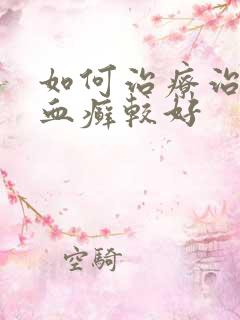 如何治療治
血癬較好
空騎